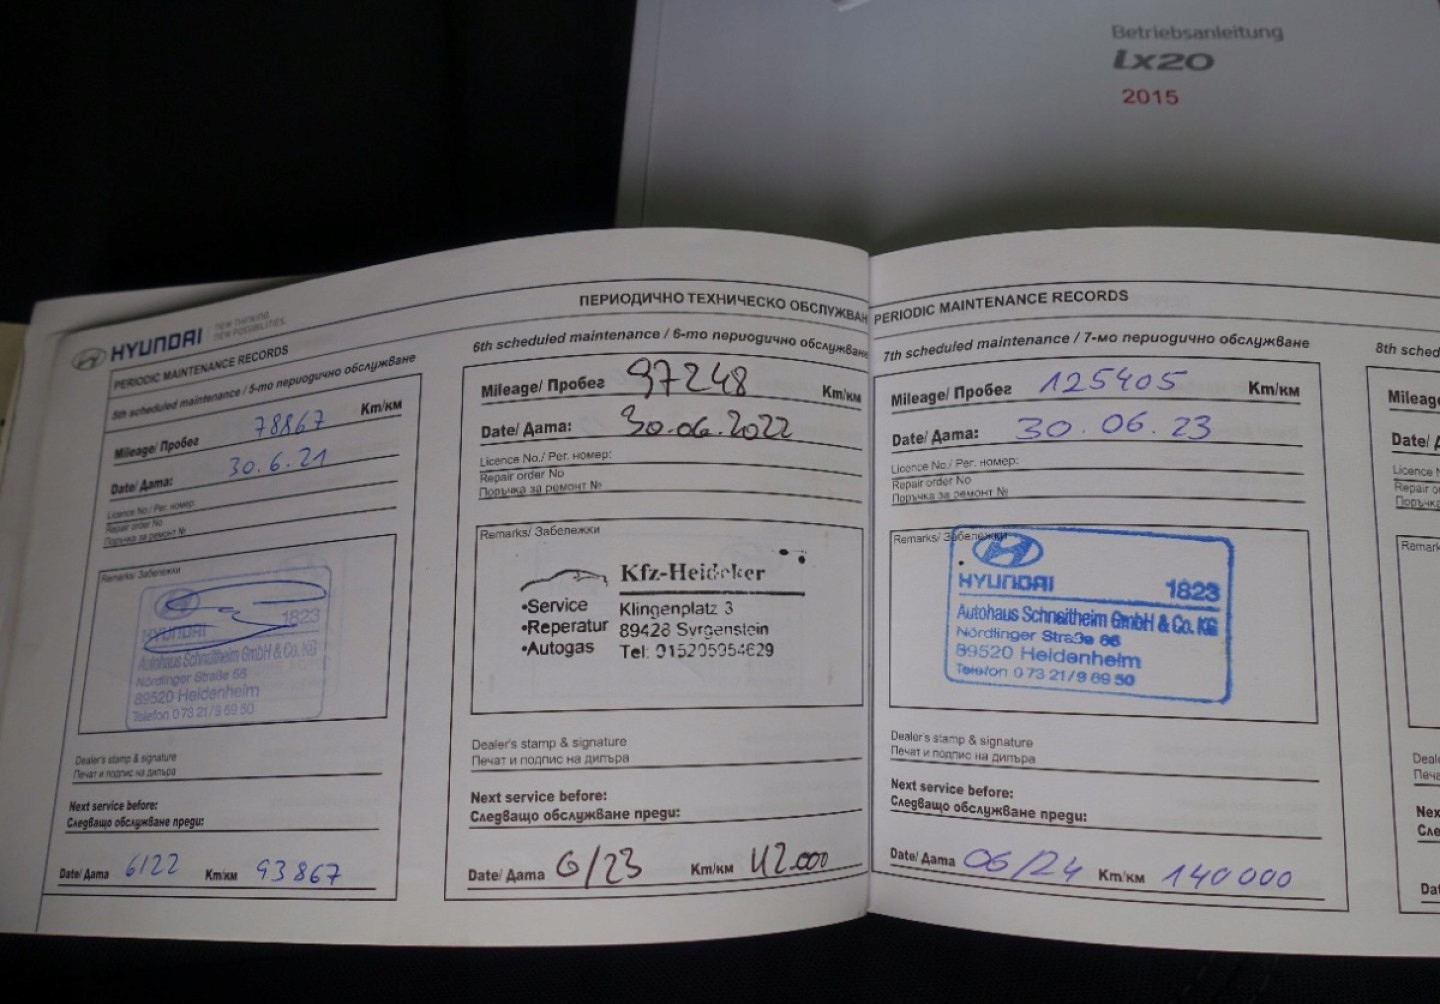 Betriebsanleitung
ix20
2015
HYUNDAI
NEW THINKING.
NEW POSSIBILITIES.
PERIODIC MAINTENANCE RECORDS
5th scheduled maintenance / 5-то периодично обслужване
Mileage/ Пробег 78867 Km/км
Date/ Дата: 30.6.21
Licence No./ Рег. номер:
Repair order No
Поръчка за ремонт №
Remarks/ Забележки
HYUNDAI 1823
Autohaus Schnaitheim GmbH & Co. KG
Nördlinger Straße 66
89520 Heidenheim
Telefon 0 73 21/9 69 50
Dealer's stamp & signature
Печат и подпис на дилъра
Next service before:
Следващо обслужване преди:
Date/ Дата 6/22 Km/км 93867
ПЕРИОДИЧНО ТЕХНИЧЕСКО ОБСЛУЖВАН
6th scheduled maintenance / 6-то периодично обслужване
Mileage/ Пробег 97248 Km/км
Date/ Дата: 30.06.2022
Licence No./ Рег. номер:
Repair order No
Поръчка за ремонт №
Remarks/ Забележки
Kfz-Heideker
•Service Klingenplatz 3
•Reperatur 89428 Syrgenstein
•Autogas Tel: 015205954629
Dealer's stamp & signature
Печат и подпис на дилъра
Next service before:
Следващо обслужване преди:
Date/ Дата 6/23 Km/км 112.000
PERIODIC MAINTENANCE RECORDS
7th scheduled maintenance / 7-мо периодично обслужване
Mileage/ Пробег 125405 Km/км
Date/ Дата: 30.06.23
Licence No./ Рег. номер:
Repair order No
Поръчка за ремонт №
Remarks/ Забележки
HYUNDAI 1823
Autohaus Schnaitheim GmbH & Co. KG
Nördlinger Straße 66
89520 Heidenheim
Telefon 0 73 21/9 69 50
Dealer's stamp & signature
Печат и подпис на дилъра
Next service before:
Следващо обслужване преди:
Date/ Дата 06/24 Km/км 140000
8th sched
Mileag
Date/ Д
Licence N
Repair o
Поръчка
Remark
Deale
Печа
Nex
Сле
Dat